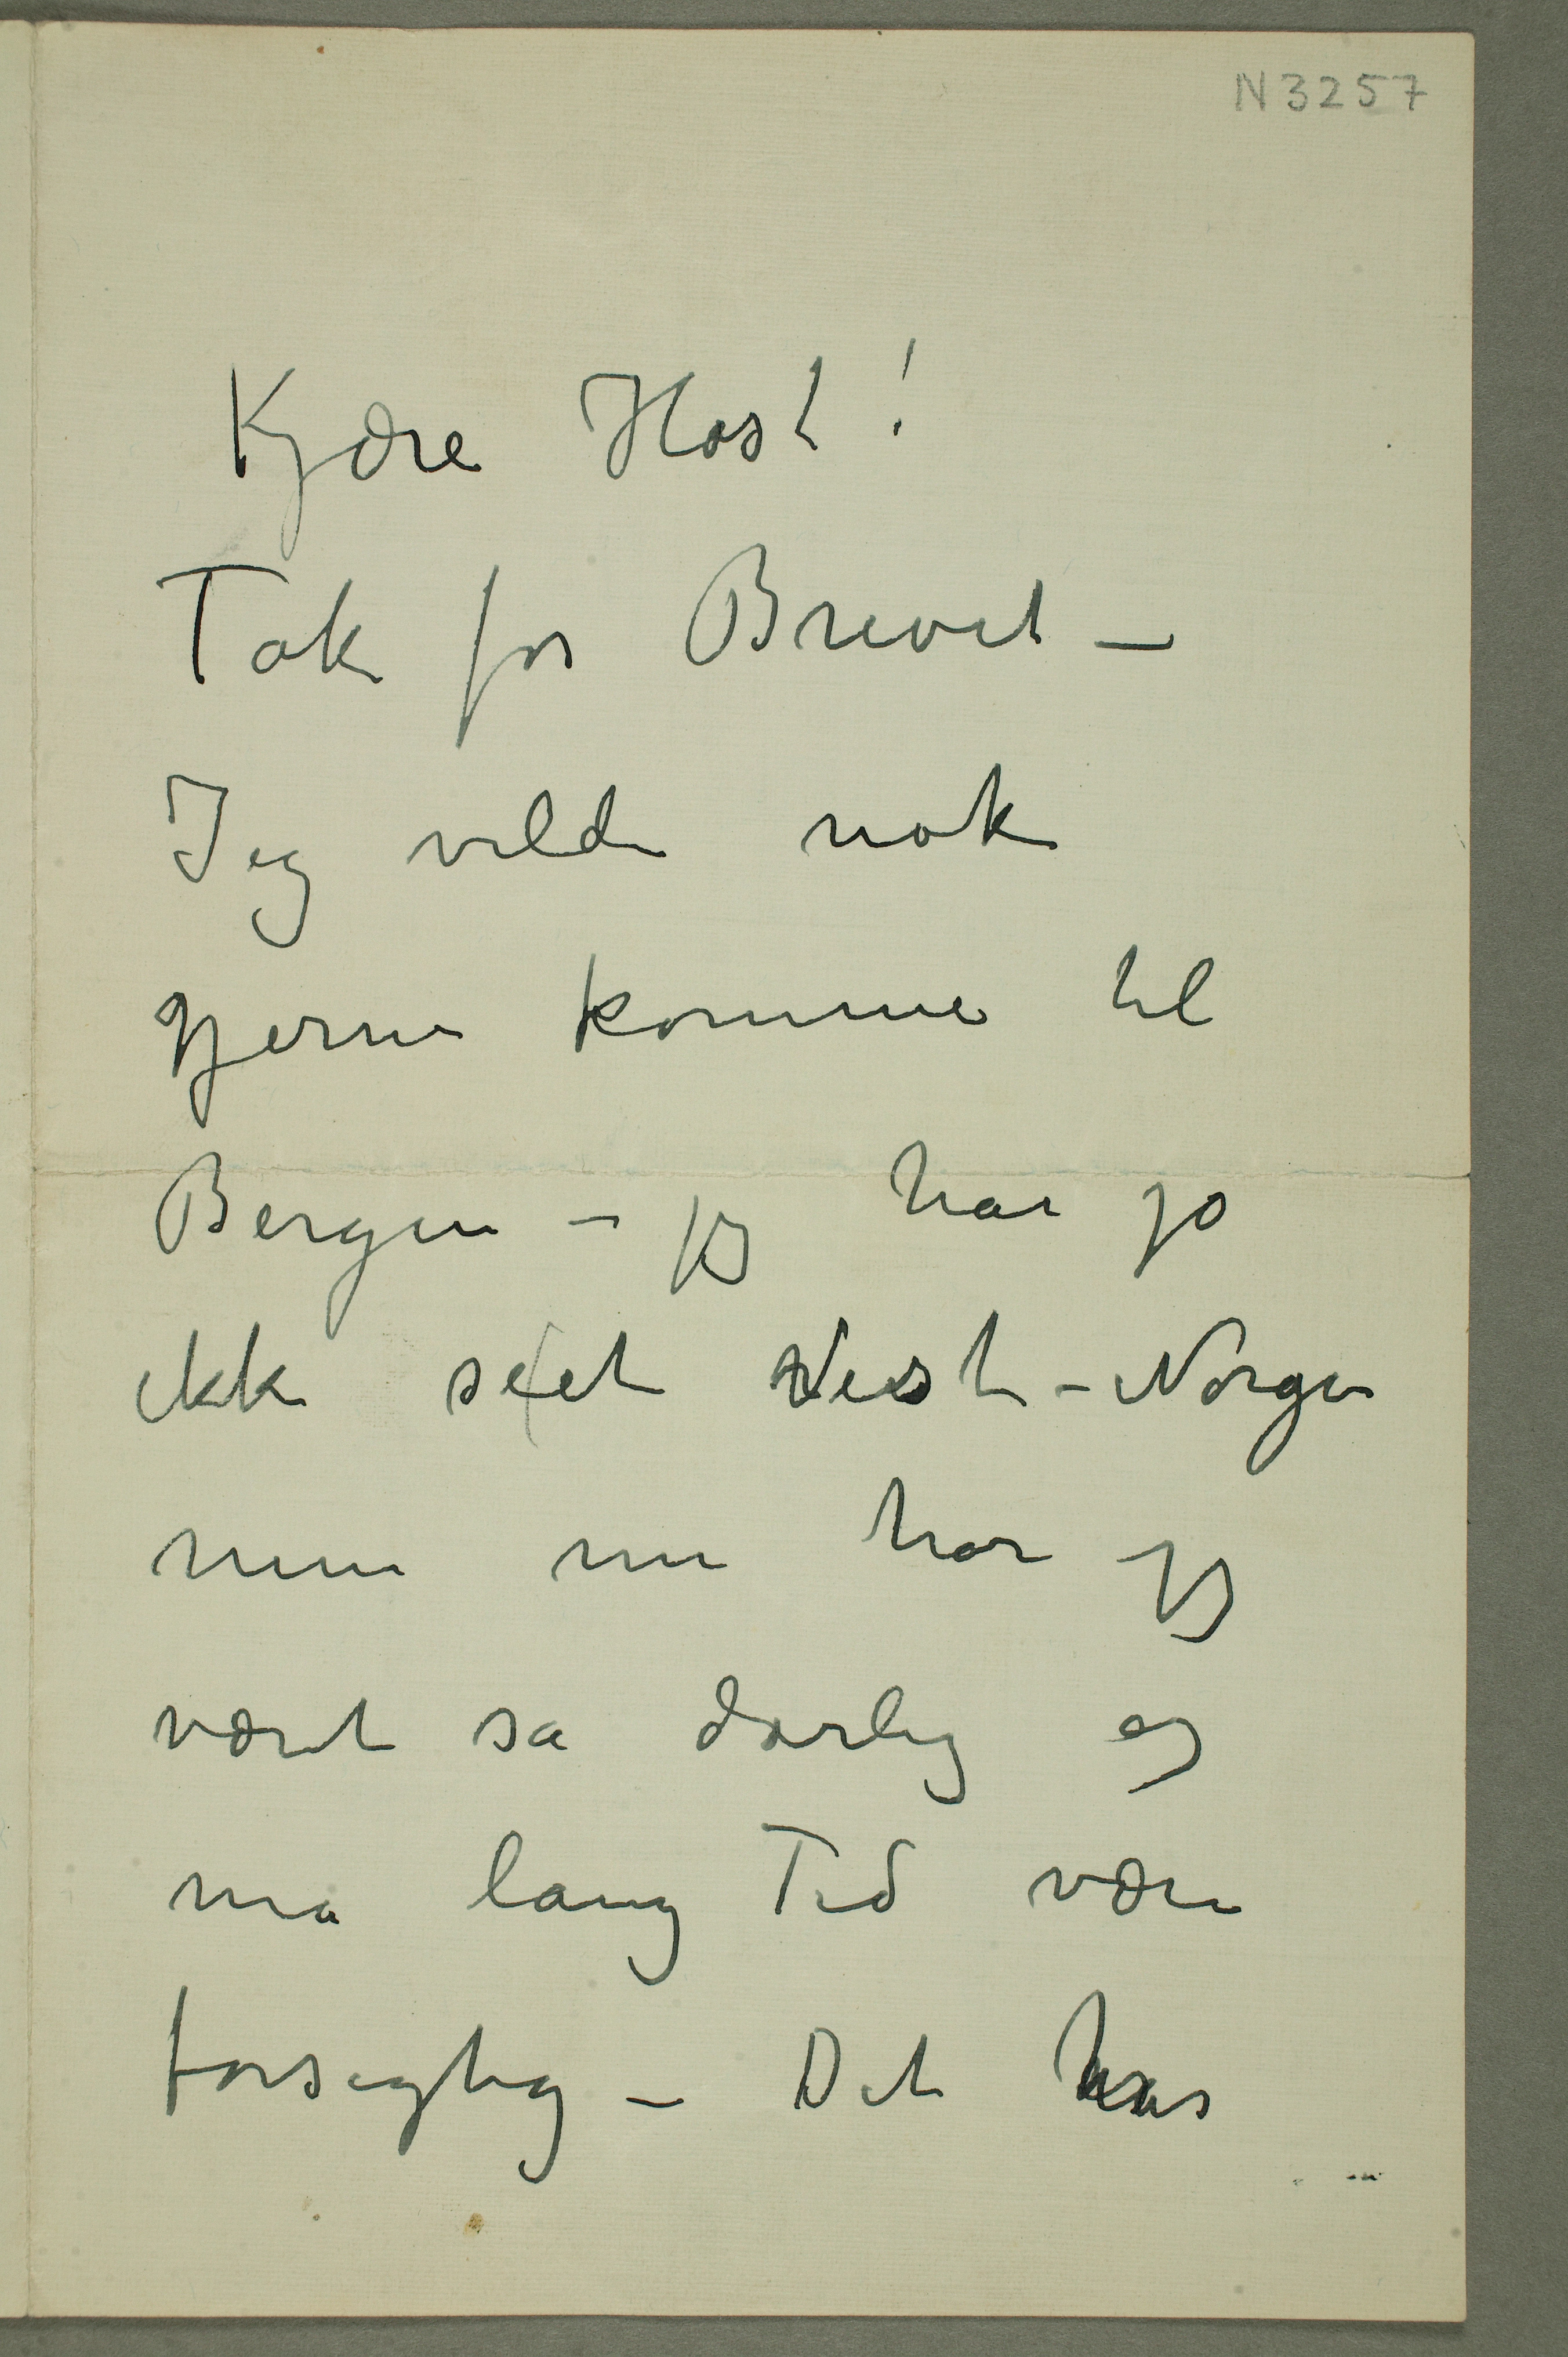 N 3257
Kjære Høst!
Tak for Brevet –
Jeg vilde nok
gjerne komme til
Bergen – jeg har jo
ikke seet Vest-Norge
men nu har jeg
været så dårlig og
må lang Tid være
forsigtig – Det har